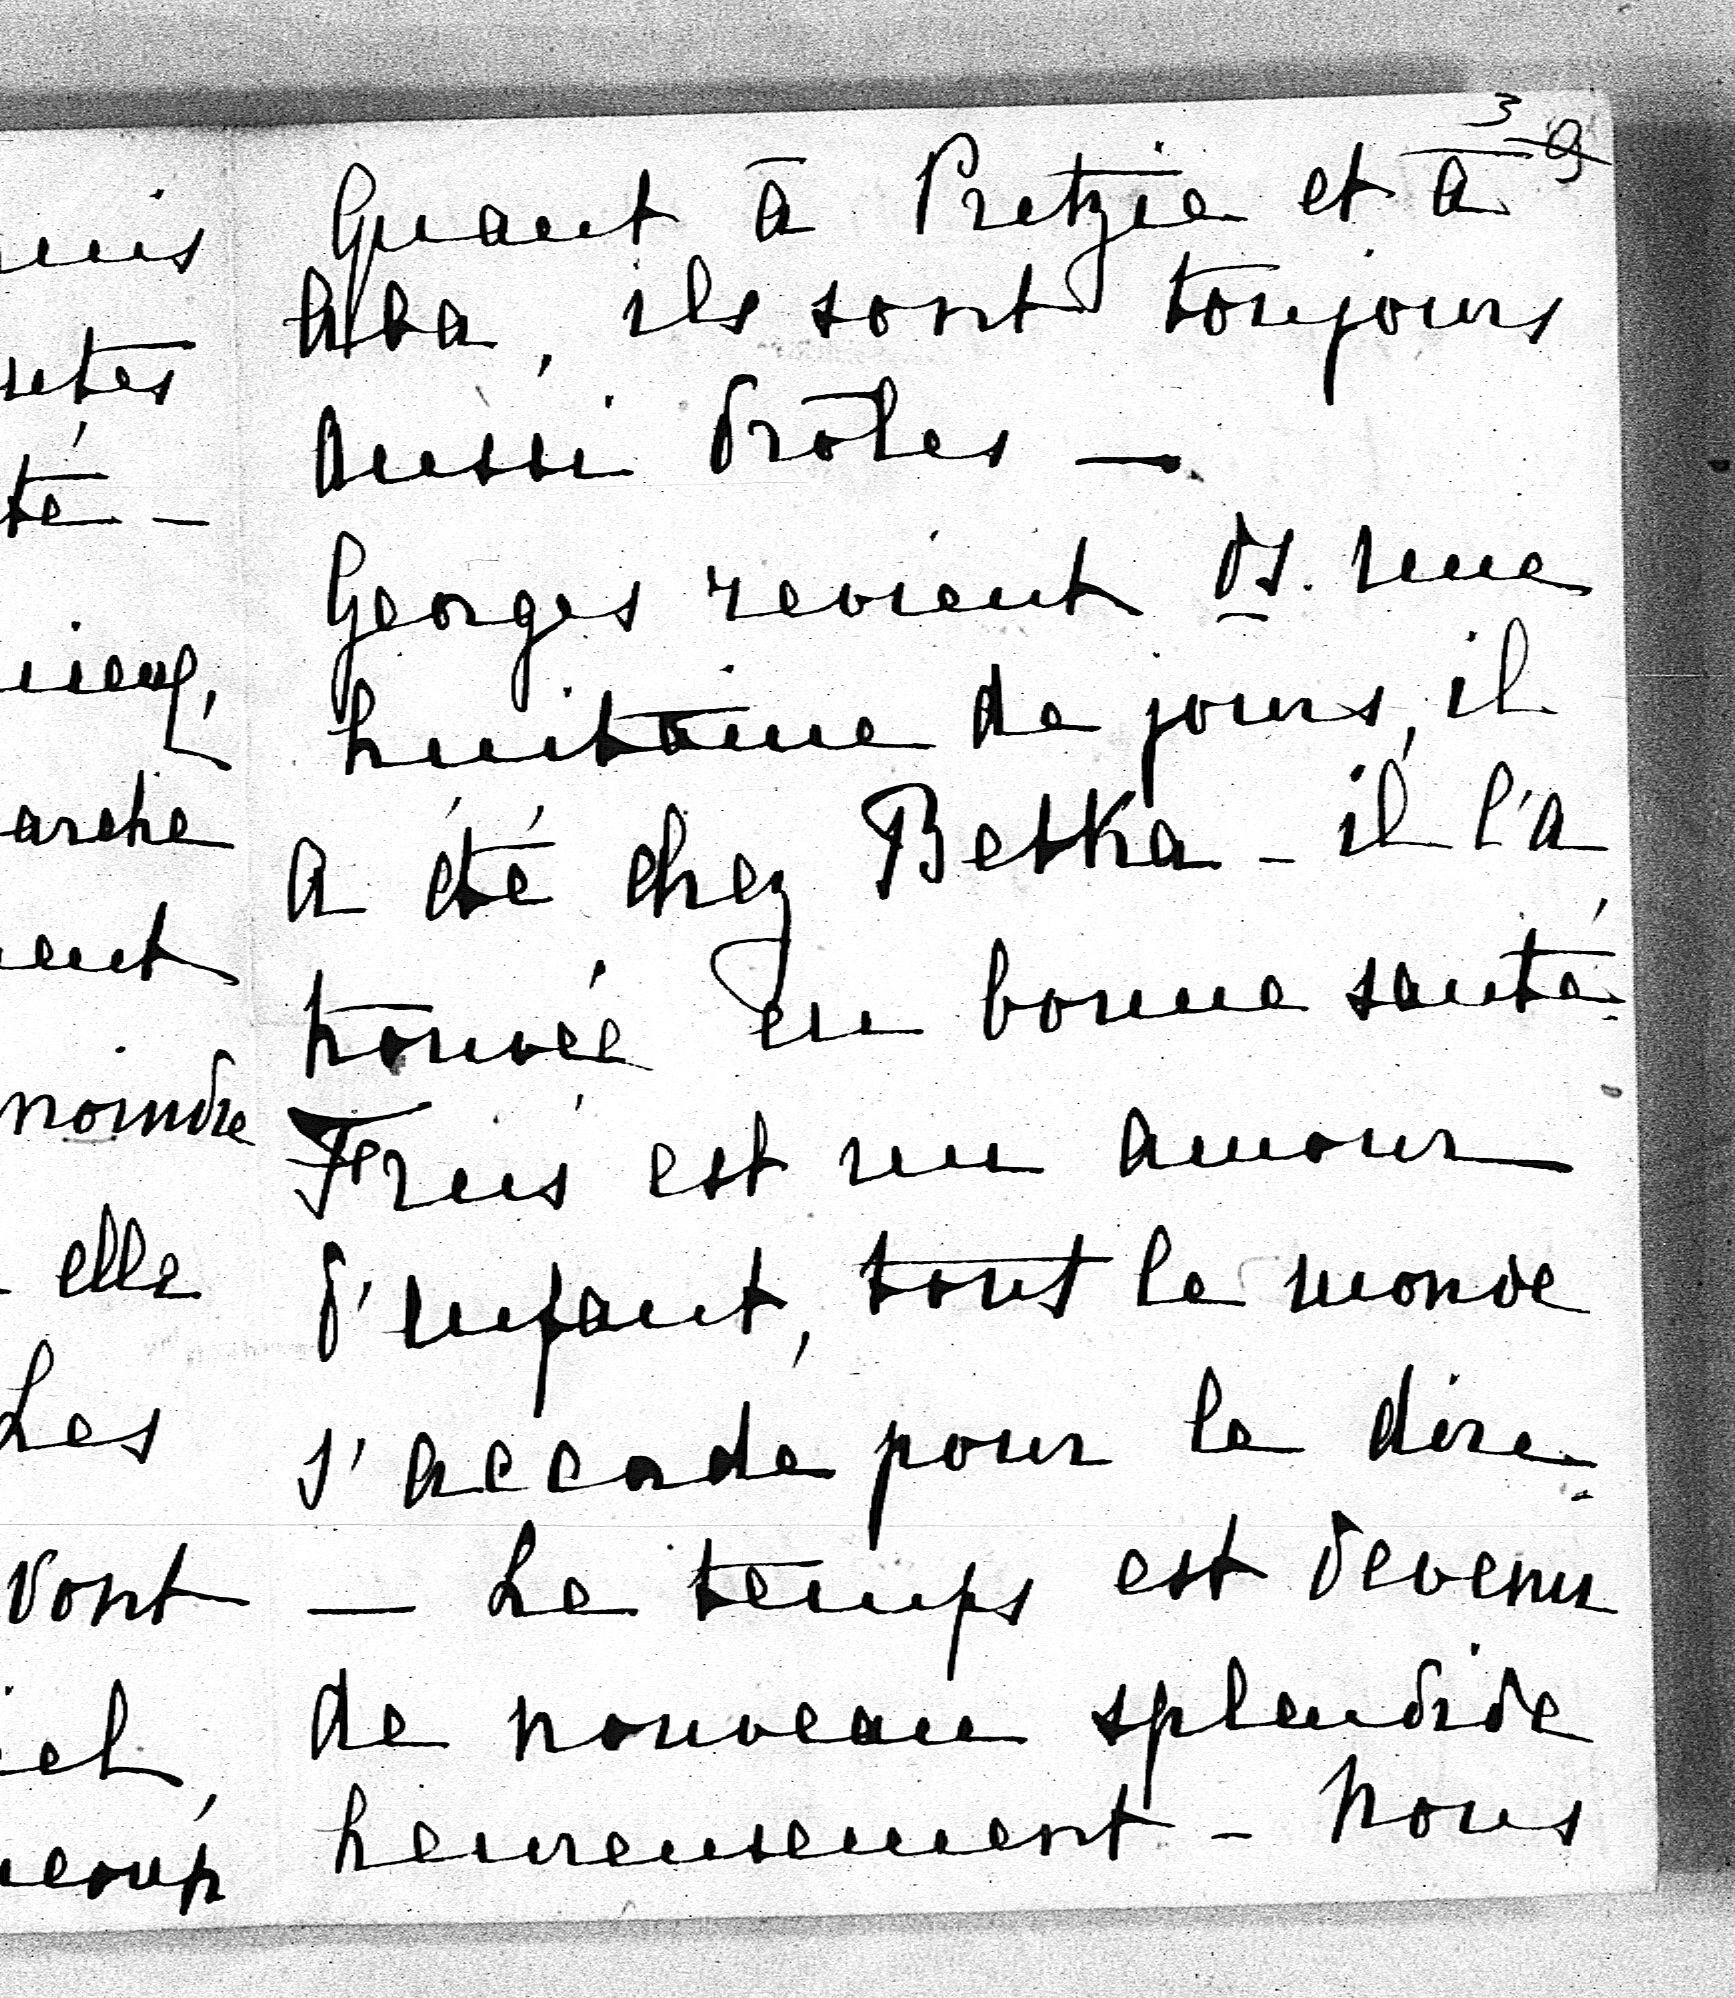 3
Quant à Pretzie et à
Alba, ils sont toujours
aussi drôles —
Georges revient ds. une
huitaine de jours, il
a été chez Betka - il l'a
trouvée en bonne santé.
est un amour
d'enfant, tout le monde
s'accorde pour le dire.
— Le temps est devenu
de nouveau splendide
heureusement - nous
té -
arche
ent
moindre
elle
Les
vont